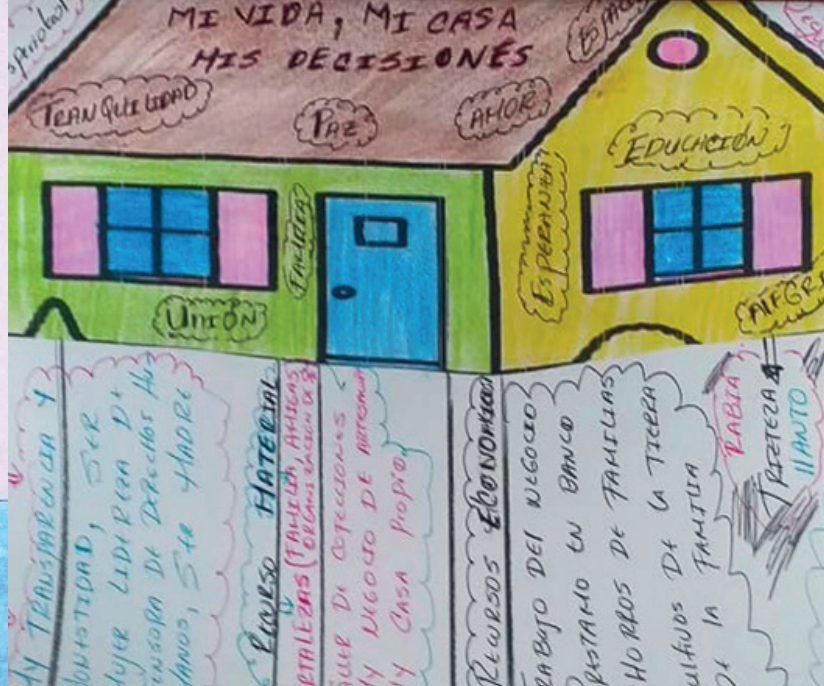 MI VIDA, MI CASA
MIS DECISIONÉS
TRANQUILIDAD
PAZ
AMOR
EDUCACIÓN
ESPERANZA
FAMILIA
UNIÓN
ALEGRI
Y TRANSPARENCIA Y
HONESTIDAD, SER
MUJER LIDEREZA DE
ENSORA DE DERECHOS HU
MANOS, SER MADRE
RECURSO MATERIAL
RTALEZAS (FAMILIA, AMIGAS
ORGANIZACIÓN DE
ALLER DE COFECCIONES
MY NEGOCIO DE ARTESANIA
MY CASA PROPIO
RECURSOS ECONÓMICOS
RABAJO DEL NEGOCIO
RESTAMO EN BANCO
HORROS DE FAMILIAS
ULTIVOS DE LA TIERRA
DE LA FAMILIA
RABIA
TRISTEZA
LLANTO